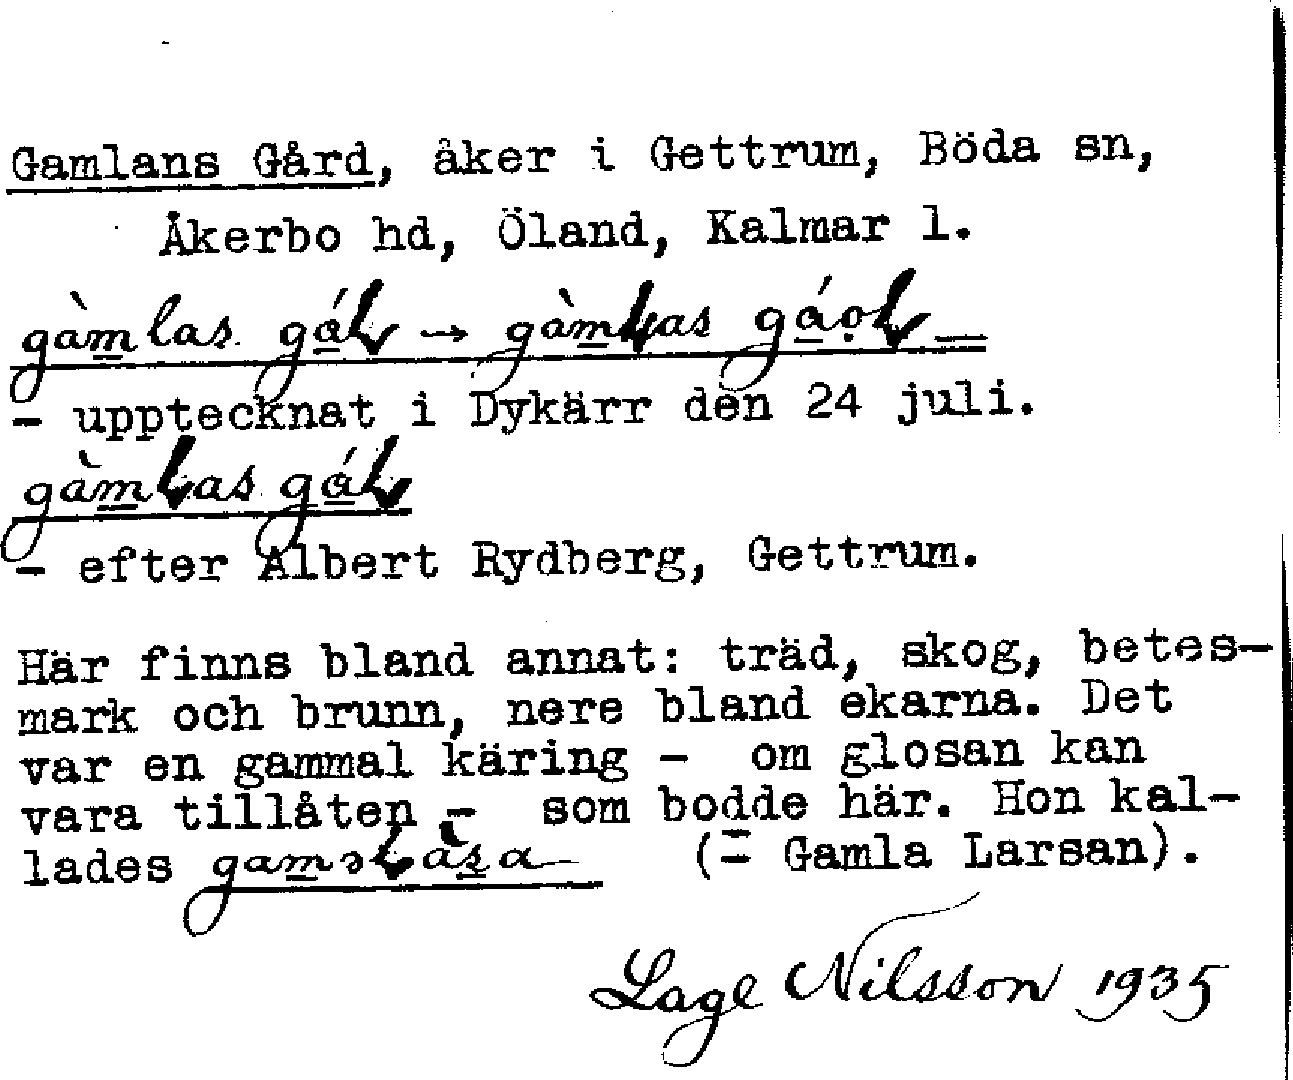 Gamlans Gård, åker i Gettrum, Böda sn,
Åkerbo hd, Öland, Kalmar l.
gàmlas
— upptecknat i Dykärr den 24 juli.
— efter Albert Rydberg, Gettrum.
Här finns bland annat: träd, skog, betes-
mark och brunn, nere bland ekarna. Det
var en gammal käring - om glosan kan
vara tillåten - som bodde här. Hon kal-
lades (= Gamla Larsan).
Lage Nilsson 1935